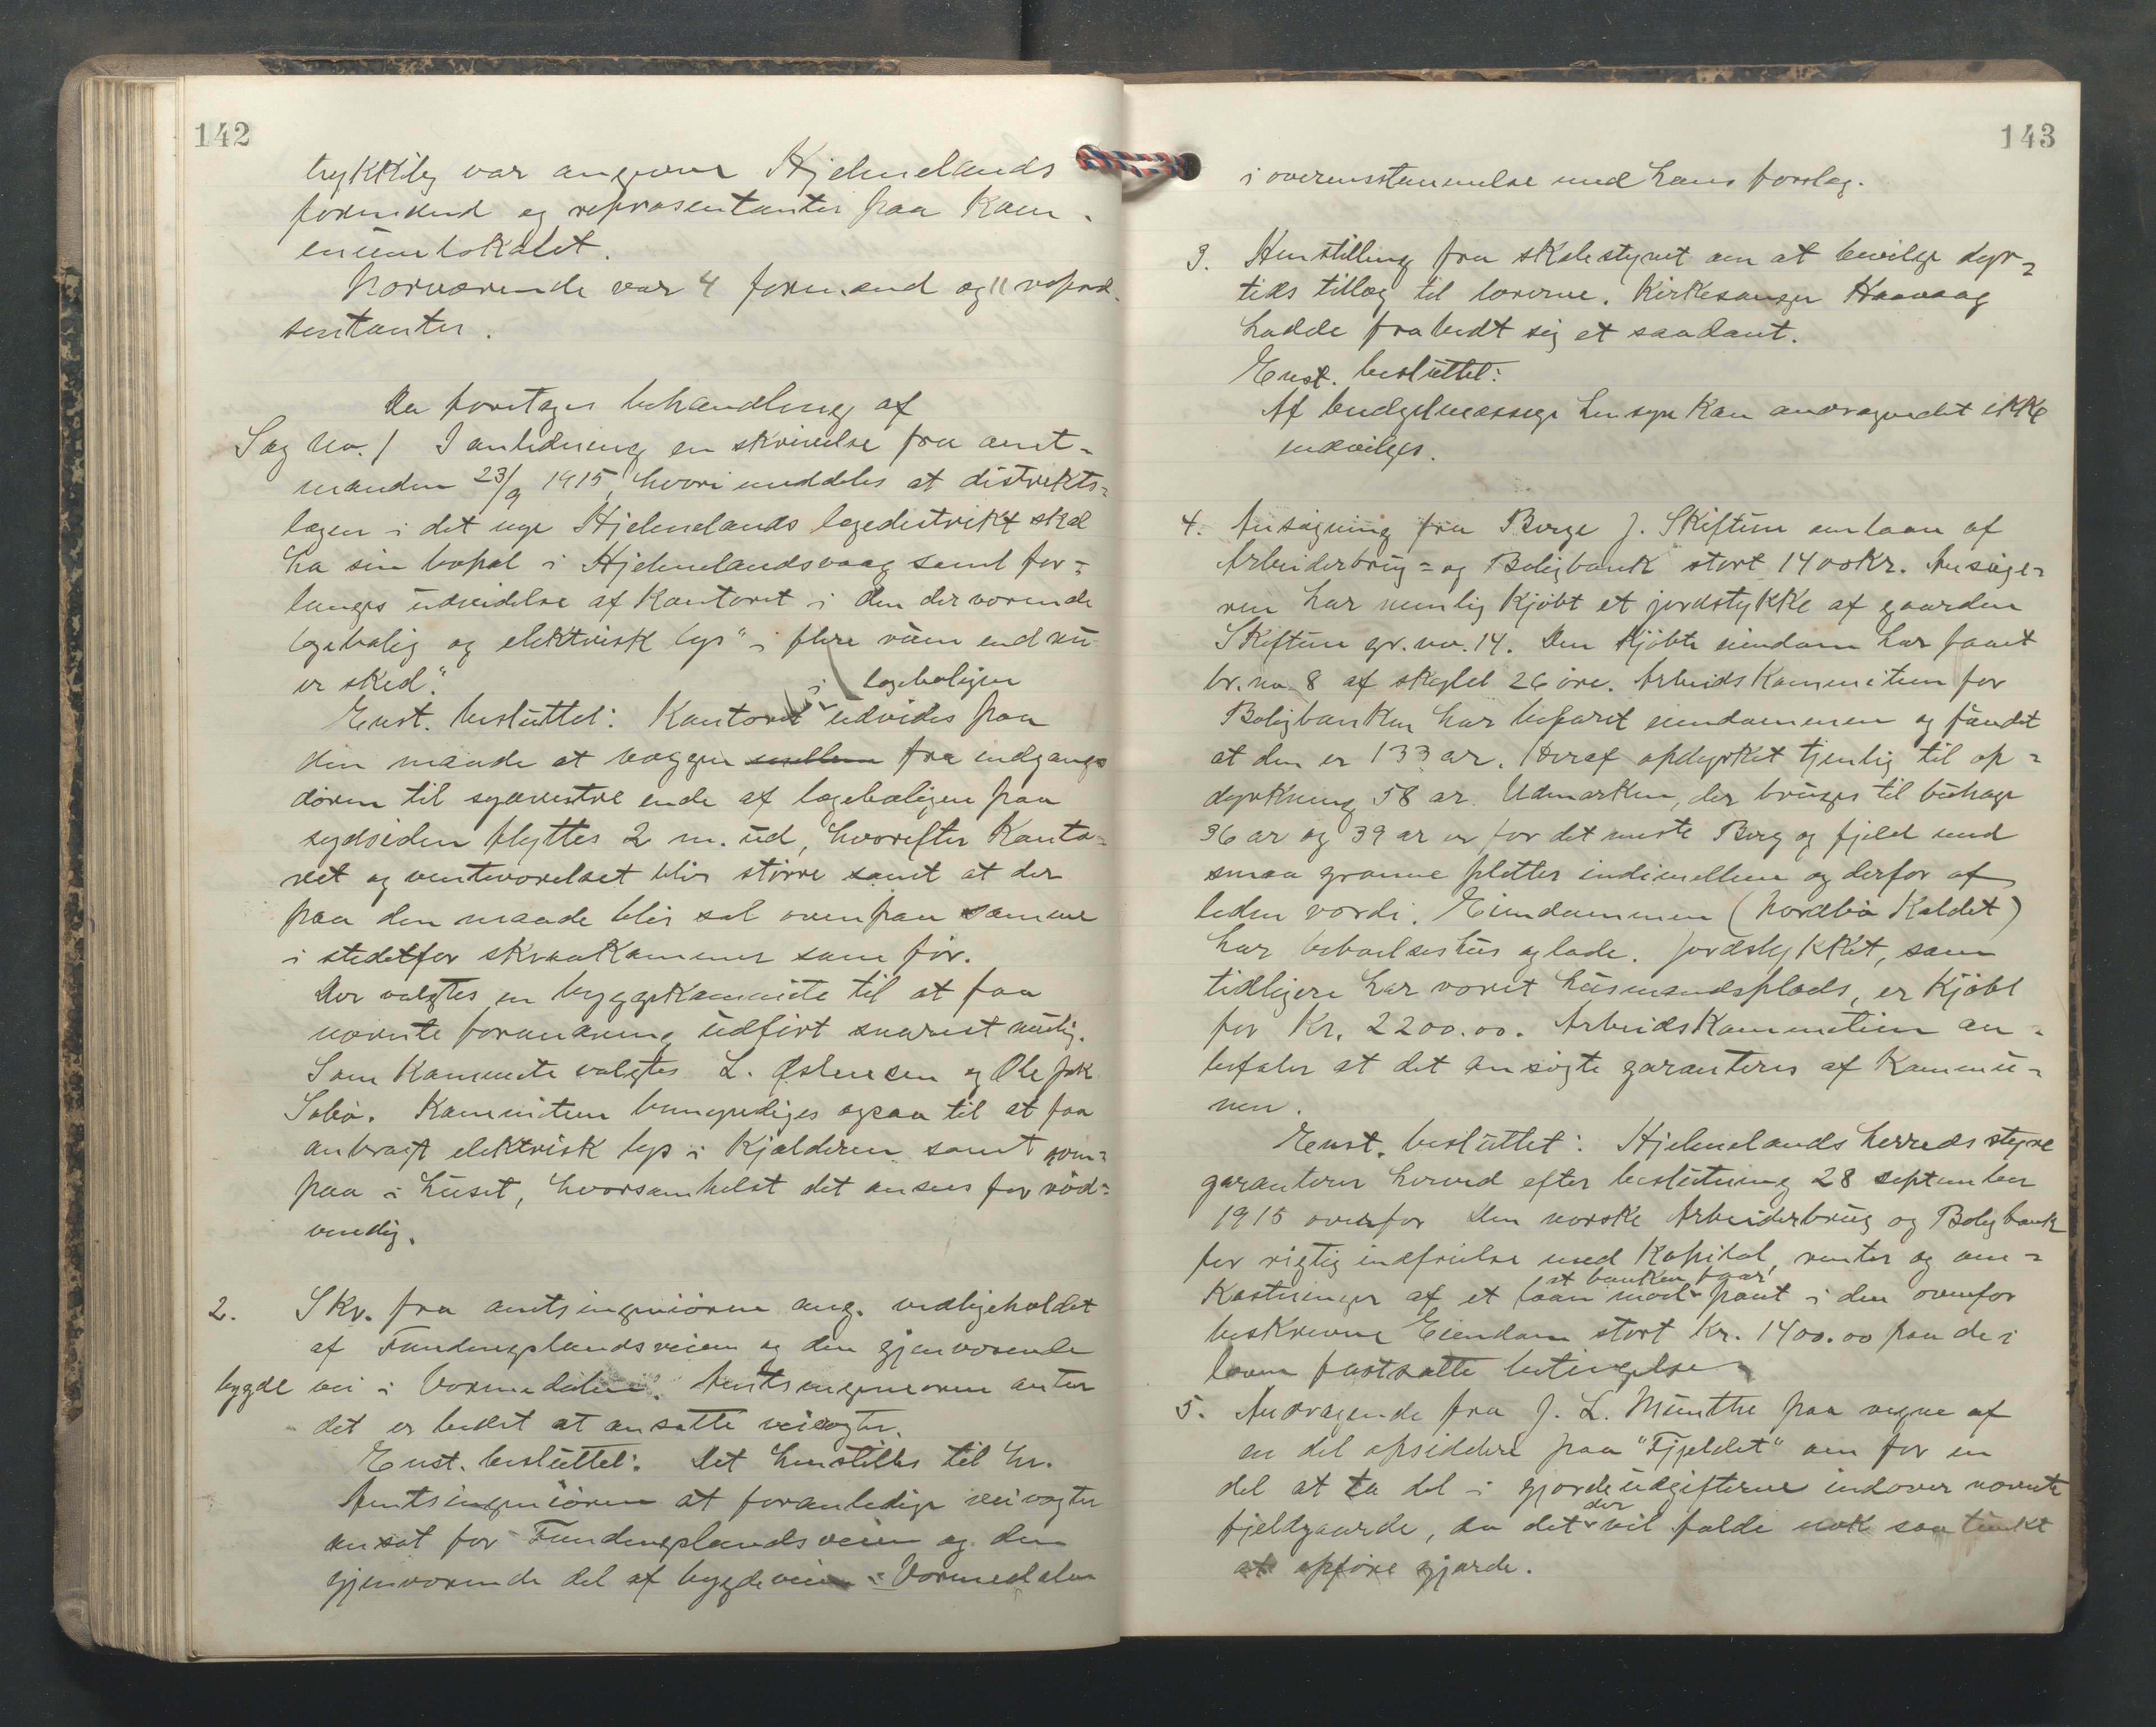 142
trykkelig var angivne Hjelmelands
formænd og repræsentanter paa Kom-
munelokalet.
Nærværende var 4 formænd og 11 repræ-
sentanter.
Der foretages behandling af
Sag No. 1 I anledning en skrivelse fra amt-
manden 23/9 1915, hvori meddeles at distrikts-
lægen i det nye Hjelmelands lægedistrikt skal
ha sin bopæl i Hjelmelandsvaag samt for-
langes udvidelse af Kontoret i den derværende
lægebolig og elektrisk lys "i flere rum end nu
er sked."
i lægeboligen
Enst. besluttet: Kontoret udvides paa
den maade at væggen mellem fra indgangs
døren til sydvestre ende af lægeboligen paa
sydsiden flyttes 2 m. ud, hvorefter Konto-
ret og venteværelset blir større samt at der
paa den maade blir sal ovenpaa samme
i stedetfor skraakammer som før.
Der valgtes en byggekomite til at faa
nævnte forandring udført snarest mulig.
Som Kommite valgtes L. Østensen og Ole Jak.
Sæbø. Kommiteen bemyndiges ogsaa til at faa
anbragt elektrisk lys i Kjælderen samt oven-
paa i huset, hvorsomhelst det ansees for nød-
vendig.
2. Skr. fra amtsingeniøren ang. vedligeholdet
af Fundingslandsveien og den gjenværende
bygde vei i Vormedalen. Amtsingeniøren antar
det er bedst at ansætte veivogter.
Enst. besluttet: Det henstilles til hr.
Amtsingeniøren at foranledige veivogter
ansat for Fundingslandsveien og den
gjenværende del af bygdeveien i Vormedalen
143
i overensstemmelse med hans forslag.
3. Henstilling fra skolestyret om at bevilge dyr-
tids tillæg til lærerne. Kirkesanger Haavaag
hadde frabedt sig et saadant.
Enst. besluttet:
Af budgetmæssige hensyn kan andragendet ikke
indvilges.
4. Ansøgning fra Børge J. Skiftun om laan af
Arbeiderbrug- og Boligbank stort 1400 kr. Ansøge-
ren har nemlig kjøbt et jordstykke af gaarden
Skiftun gr. no. 14. Den kjøbte eiendom har faaet
br. no. 8 af skyld 26 øre. Arbeidskommiteen for
Boligbanken har befaret eiendommen og fundet
at den er 133 ar. Heraf opdyrket tjenlig til op-
dyrkning 58 ar. Udmarken, der bruges til buhage
36 ar og 39 ar er for det meste Berg og fjeld med
smaa grønne pletter indimellem og derfor af
liden værdi. Eiendommen (Nordbø kaldet)
har beboelseshus og lade. Jordstykket, som
tidligere har været husmandsplads, er kjøbt
for Kr. 2200.00. Arbeidskommiteen an-
befaler at det ansøgte garanteres af Kommu-
nen.
Enst. besluttet: Hjelmelands herredsstyre
garanterer herved efter beslutning 28 september
1915 overfor Den norske Arbeiderbrug og Boligbank
for rigtig indfrielse med Kapital, renter og om-
at banken faar
kostninger af et laan mod pant i den ovenfor
beskrevne Eiendom stort Kr. 1400.00 paa de i
loven fastsatte betingelser
5. Andragende fra J. L. Munthe paa vegne af
en del opsiddere paa "Fjeldet" om for en
del at ta del i gjerdeudgifterne indover nævnte
der
fjeldgaarde, da det vil falde nok saa tungt
at opføre gjærde.